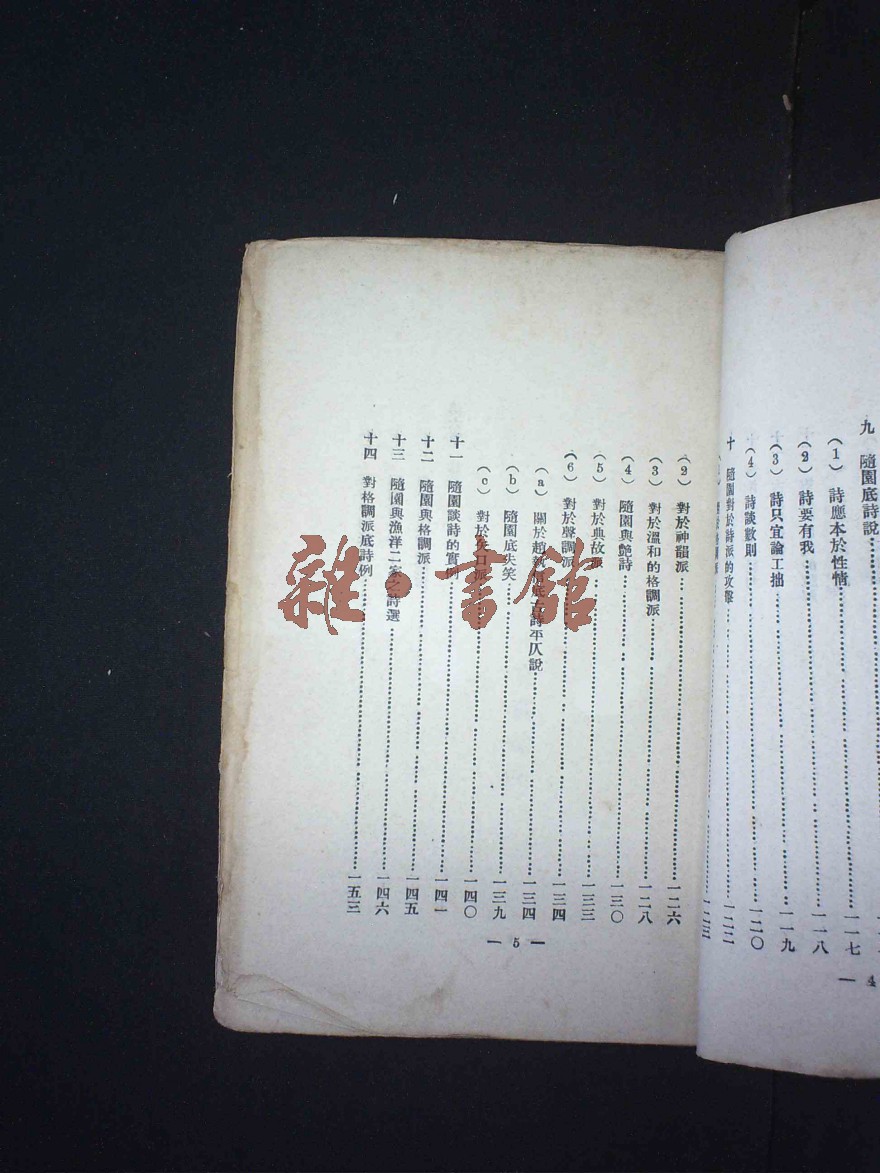 九 隨園底詩說
(1) 詩應本於性情……一一七
(2) 詩要有我……一一八
(3) 詩只宜論工拙……一一九
(4) 詩談數則……一二〇
十 隨園對於詩派的攻擊……一二二
一二三
— 4
(2) 對於神韻派……一二六
(3) 對於溫和的格調派……一二八
(4) 隨園與艷詩……一三〇
(5) 對於典故派……一三三
(6) 對於聲調派……一三四
(a) 關於趙執信底古詩平仄說……一三四
(b) 隨園底失笑……一三九
(c) 對於矢口派……一四〇
十一 隨園談詩的實例……一四一
十二 隨園與格調派……一四五
十三 隨園與漁洋二家之詩選……一四六
十四 對格調派底詩例……一五三
— 5 —
雜·書館